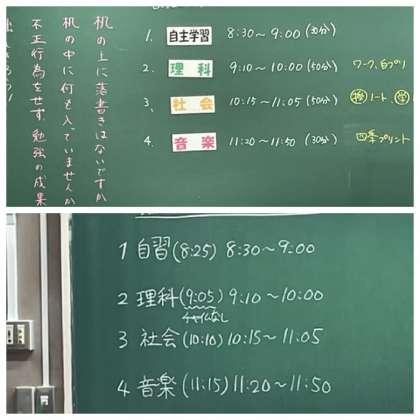 机の上に落書きはないですか
机の中に何も入っていませんか
不正行為をせず、勉強の成果
1. 自主学習 8:30～9:00 (30分)
2. 理科 9:10～10:00 (50分) ワーク、白プリ
3. 社会 10:15～11:05 (50分) ノート、
4. 音楽 11:20～11:50 (30分) 四季プリント
1 自習(8:25) 8:30～9:00
2 理科(9:05) 9:10～10:00
チャイムなし
3 社会(10:10) 10:15～11:05
4 音楽(11:15) 11:20～11:50